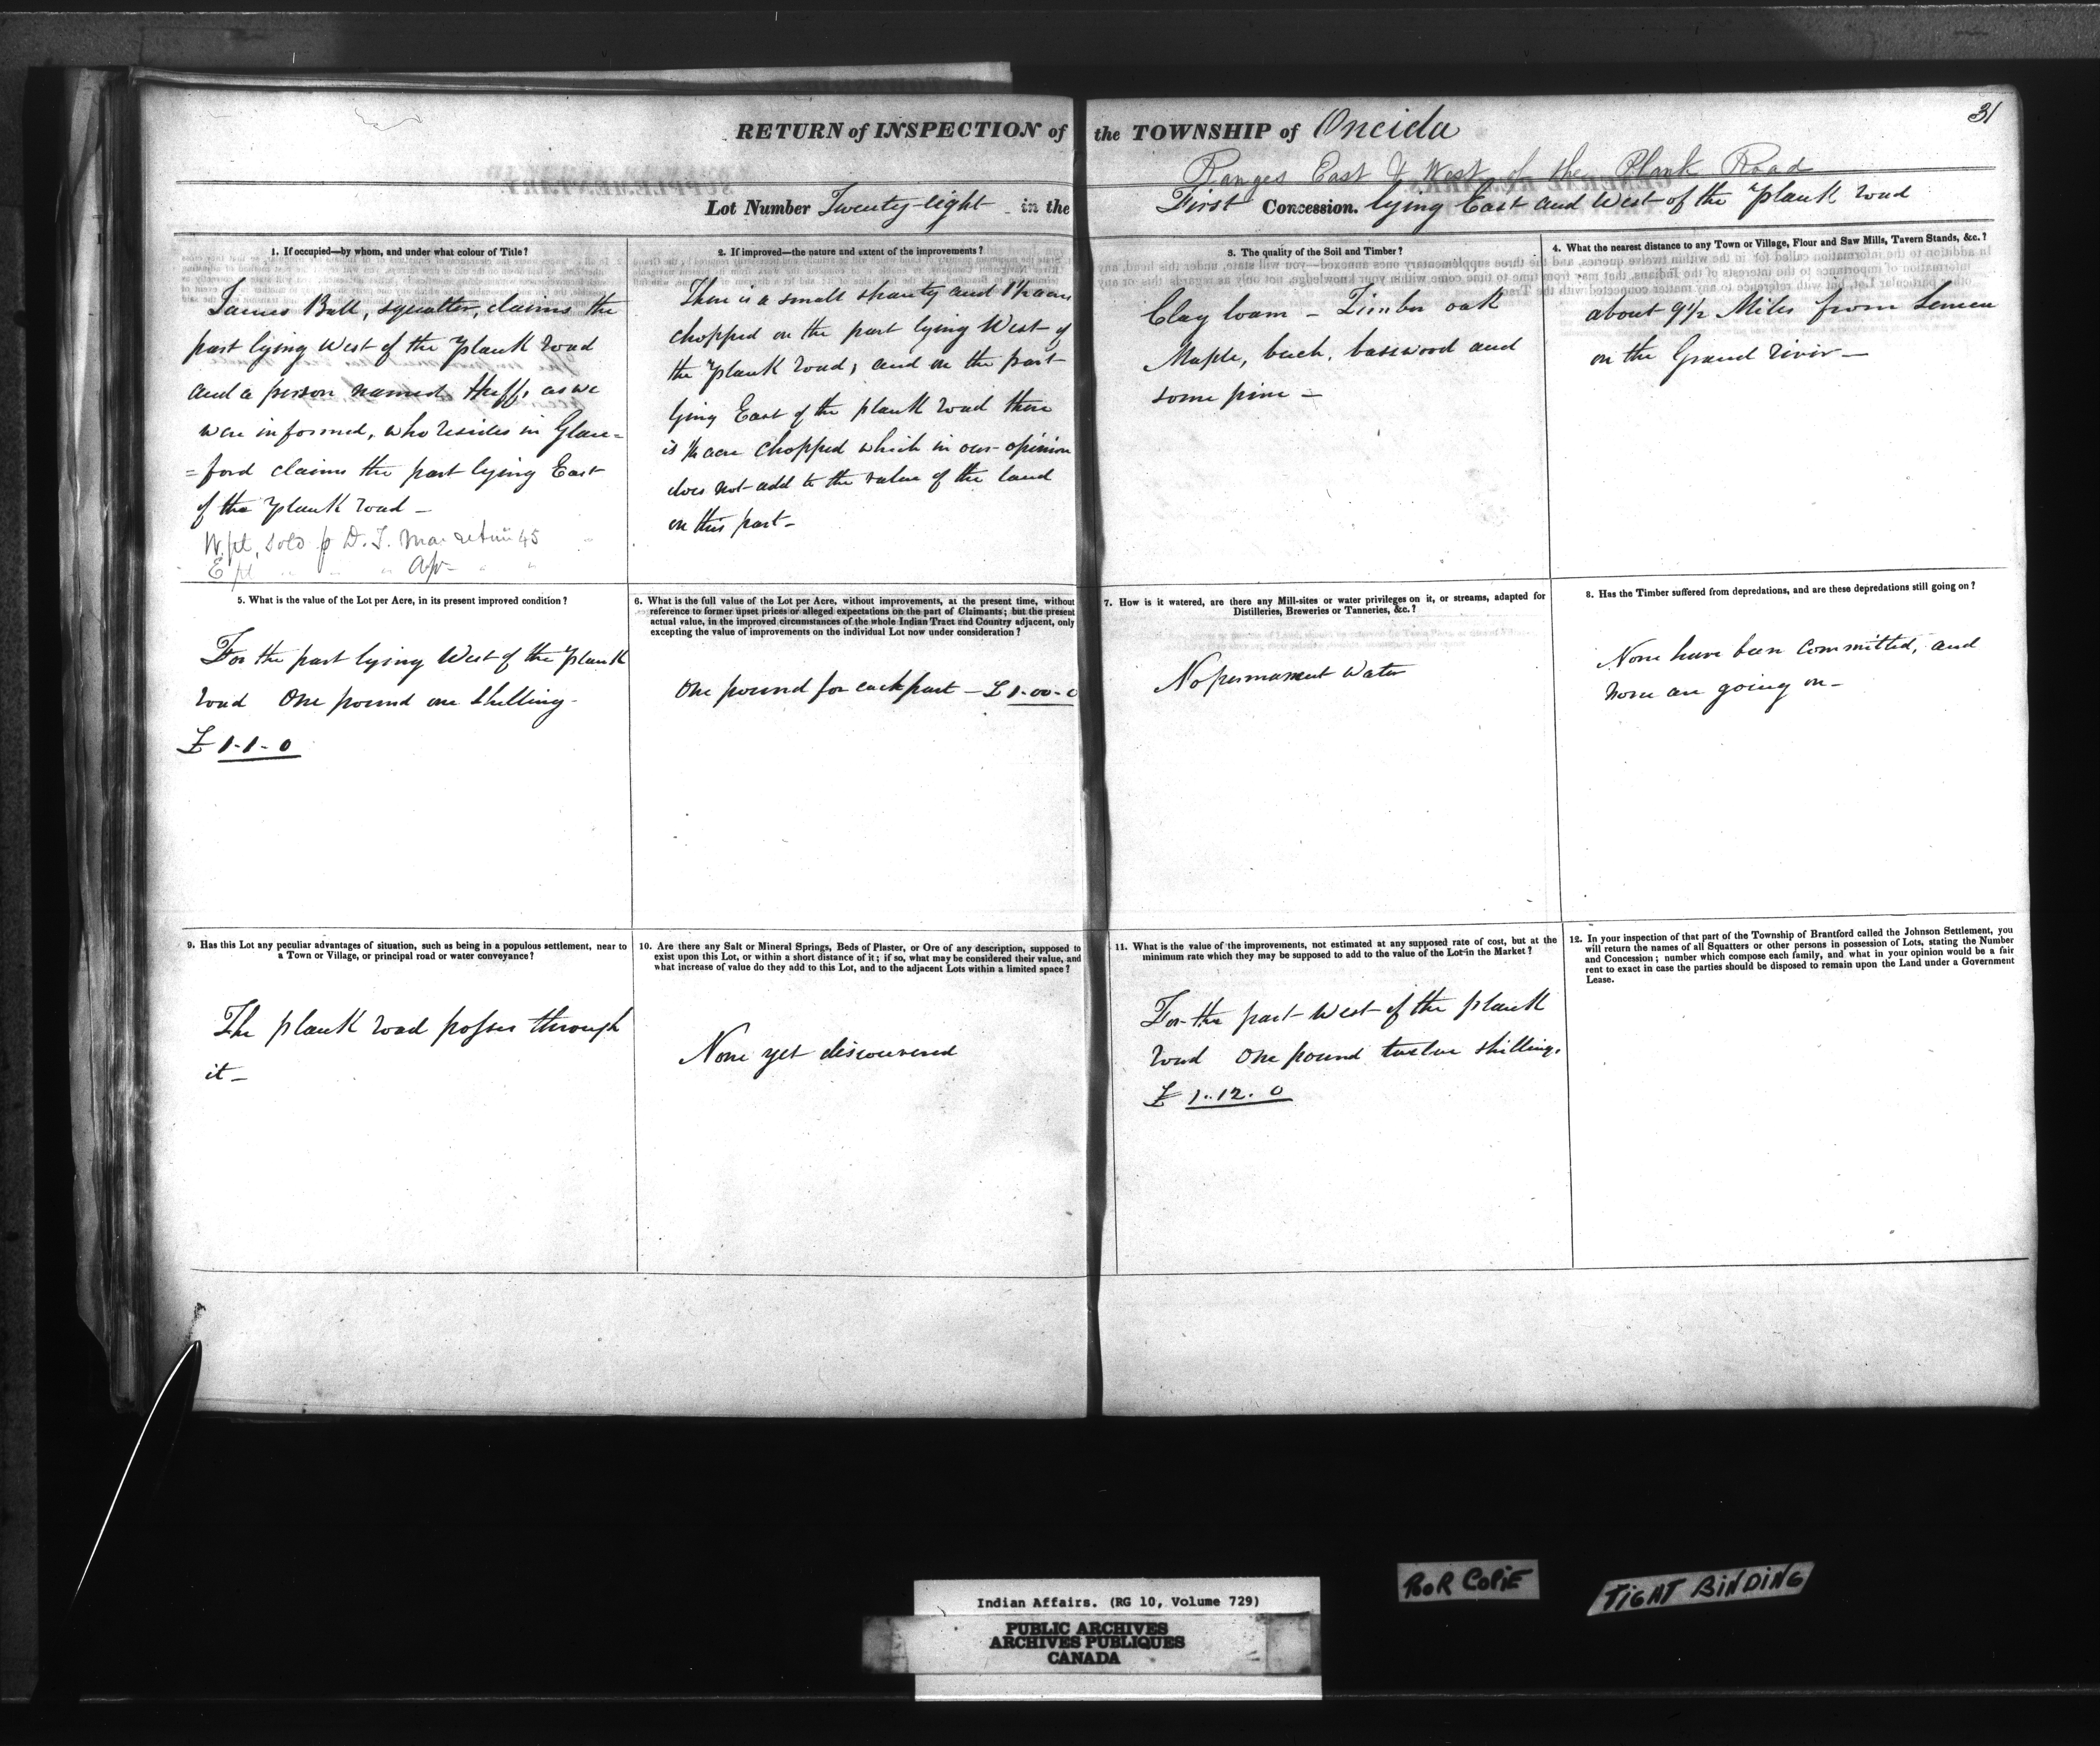 31
RETURN of INSPECTION of the TOWNSHIP of Oneida
Ranges East & West of the Plank Road
Lot Number Twenty-eight in the First Concession. lying East and West of the Plank road
1. If occupied—by whom, and under what colour of Title?
James Ball, squatter, claims the
part lying West of the Plank road
and a person named Huff, as we
were informed, who resides in Glan=
=ford claims the part lying East
of the Plank road —
W. pt, Sold p D. T. Mar return 45
E pt " " " Apr " "
2. If improved—the nature and extent of the improvements?
There is a small shanty and 1½ acres
chopped on the part lying West of
the Plank road; and on the part
lying East of the plank road there
is ½ acre chopped which in our opinion
does not add to the value of the land
on this part—
3. The quality of the Soil and Timber?
Clay loam — Timber oak
Maple, beech, basswood and
some pine —
4. What the nearest distance to any Town or Village, Flour and Saw Mills, Tavern Stands, &c.?
about 9½ Miles from Seneca
on the Grand river —
5. What is the value of the Lot per Acre, in its present improved condition?
For the part lying West of the Plank
road One pound one Shilling-
£ 1-1-0
6. What is the full value of the Lot per Acre, without improvements, at the present time, without
reference to former upset prices or alleged expectations on the part of Claimants; but the present
actual value, in the improved circumstances of the whole Indian Tract and Country adjacent, only
excepting the value of improvements on the individual Lot now under consideration?
One pound for each part — £ 1-00-0
7. How is it watered, are there any Mill-sites or water privileges on it, or streams, adapted for
Distilleries, Breweries or Tanneries, &c.?
No permanent Water
8. Has the Timber suffered from depredations, and are these depredations still going on?
None have been Committed, and
none are going on—
9. Has this Lot any peculiar advantages of situation, such as being in a populous settlement, near to
a Town or Village, or principal road or water conveyance?
The plank road passes through
it —
10. Are there any Salt or Mineral Springs, Beds of Plaster, or Ore of any description, supposed to
exist upon this Lot, or within a short distance of it; if so, what may be considered their value, and
what increase of value do they add to this Lot, and to the adjacent Lots within a limited space?
None yet discovered
11. What is the value of the improvements, not estimated at any supposed rate of cost, but at the
minimum rate which they may be supposed to add to the value of the Lot in the Market?
For the part West of the plank
road One pound twelve shillings
£ 1..12. 0
12. In your inspection of that part of the Township of Brantford called the Johnson Settlement, you
will return the names of all Squatters or other persons in possession of Lots, stating the Number
and Concession; number which compose each family, and what in your opinion would be a fair
rent to exact in case the parties should be disposed to remain upon the Land under a Government
Lease.
POOR COPIE
TIGHT BINDING
Indian Affairs. (RG 10, Volume 729)
PUBLIC ARCHIVES
ARCHIVES PUBLIQUES
CANADA